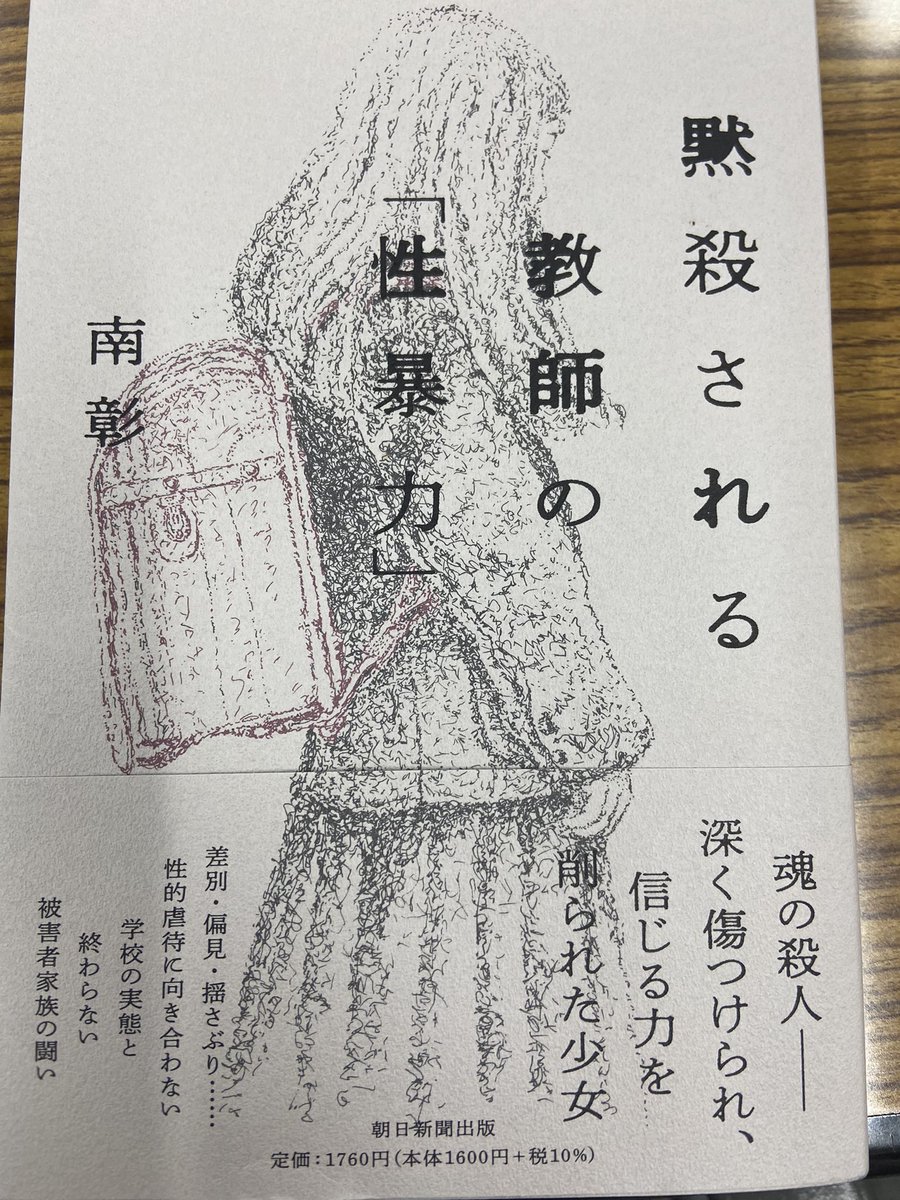 黙殺される
教師の
「性暴力」
南 彰
魂の殺人――
深く傷つけられ、
信じる力を
削られた少女
差別・偏見・揺さぶり……
性的虐待に向き合わない
学校の実態と
終わらない
被害者家族の闘い
朝日新聞出版
定価：1760円（本体1600円＋税10％）